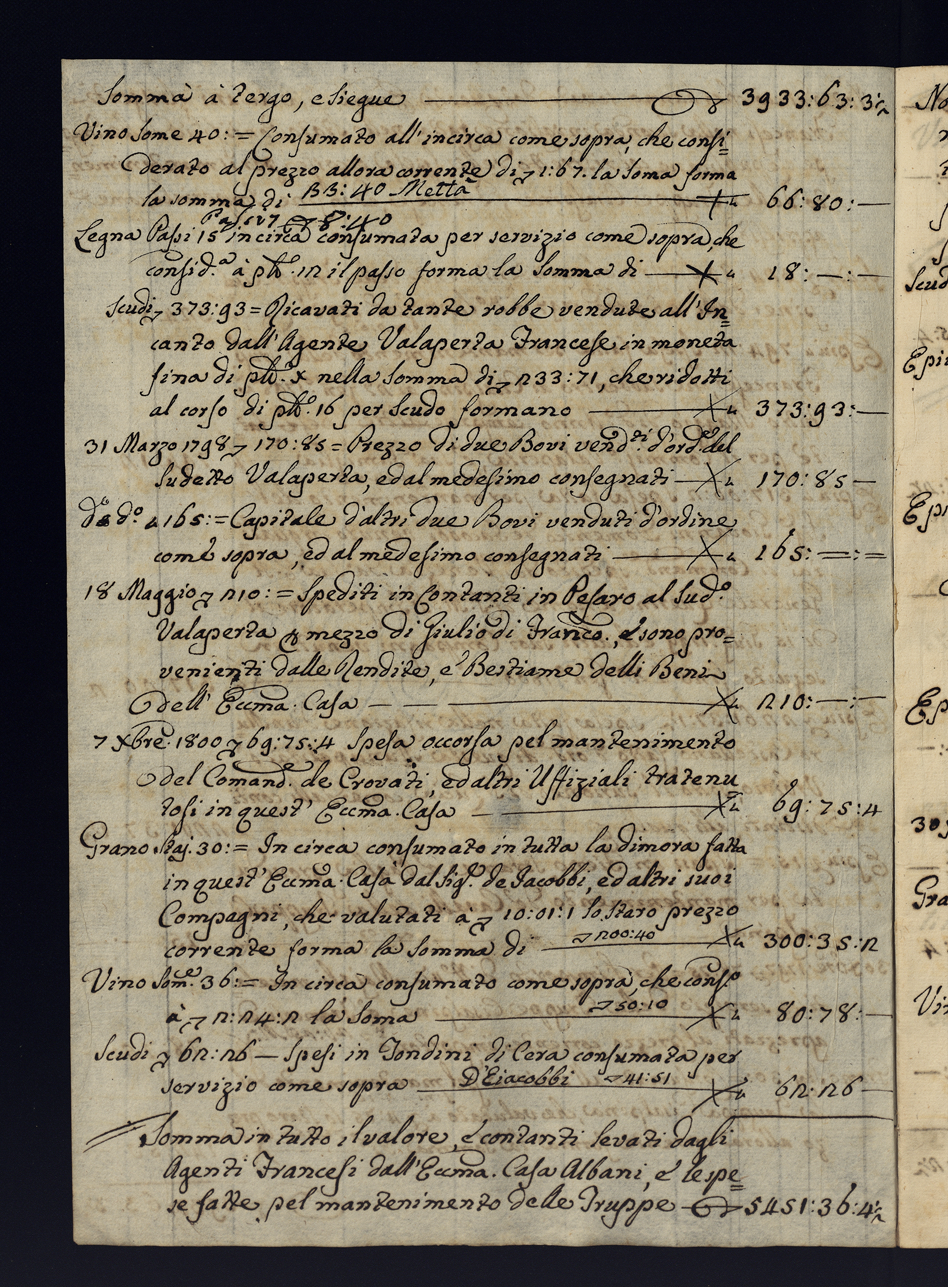 Somma à tergo, e siegue — 3933:63:3½
Vino Some 40:= Consumato all'incirca come sopra, che consi=
derato al prezzo allora corrente di 1:67. la soma forma
la somma di BB: 40 Mettà 66:80:—
Passi 7 8:40
Legna Passi 15 incirca consumata per servizio come sopra, che
consid.ª à pli. 12 il passo forma la Somma di — 18:—:—
Scudi 373:93 = Ricavati da tante robbe vendute all'In=
canto dall'Agente Valaperta Francese in moneta
fina di pli. X nella Somma di 2233:71, che ridotti
al corso di pli. 16 per Scudo formano — 373:93:—
31 Marzo 1798 170:85 = Prezzo di due Bovi vend.ti d'ord.e del
Sudetto Valaperta, ed al medesimo consegnati — 170:85 —
D.º d.º 165:= Capitale d'altri due Bovi venduti d'ordine
come sopra, ed al medesimo consegnati — 165:=:=
18 Maggio 210:= Spediti in Contanti in Pesaro al Sud.º
Valaperta p mezzo di Giulio di Franco. e sono pro=
venienti dalle Rendite, e Bestiame delli Beni
dell' Eccma. Casa — 210:—:—
7 Xbre. 1800 69:75:4 Spesa occorsa pel mantenimento
del Comand.e de Crovati, ed altri Uffiziali tratenu
tosi in quest' Eccma. Casa — 69:75:4
Grano Staj. 30:= In circa consumato in tutta la dimora fatta
in quest' Eccma. Casa dal Sig.r de Jacobbi, ed altri suoi
Compagni, che valutati à 10:01:1 lo Staro prezzo
corrente forma la Somma di 200:40 300:35:2
Vino Som.e 36:= In circa consumato come sopra, che cons.º
à 2:24:2 la Soma 50:10 80:78:—
Scudi 62:26 — Spesi in Tondini di Cera consumata per
servizio come sopra D'Eiacobbi 41:51 62:26 —
Somma in tutto il valore, e contanti levati dagli
Agenti Francesi dall'Eccma. Casa Albani, e le spe=
se fatte pel mantenimento delle Truppe — 5451:36:4½